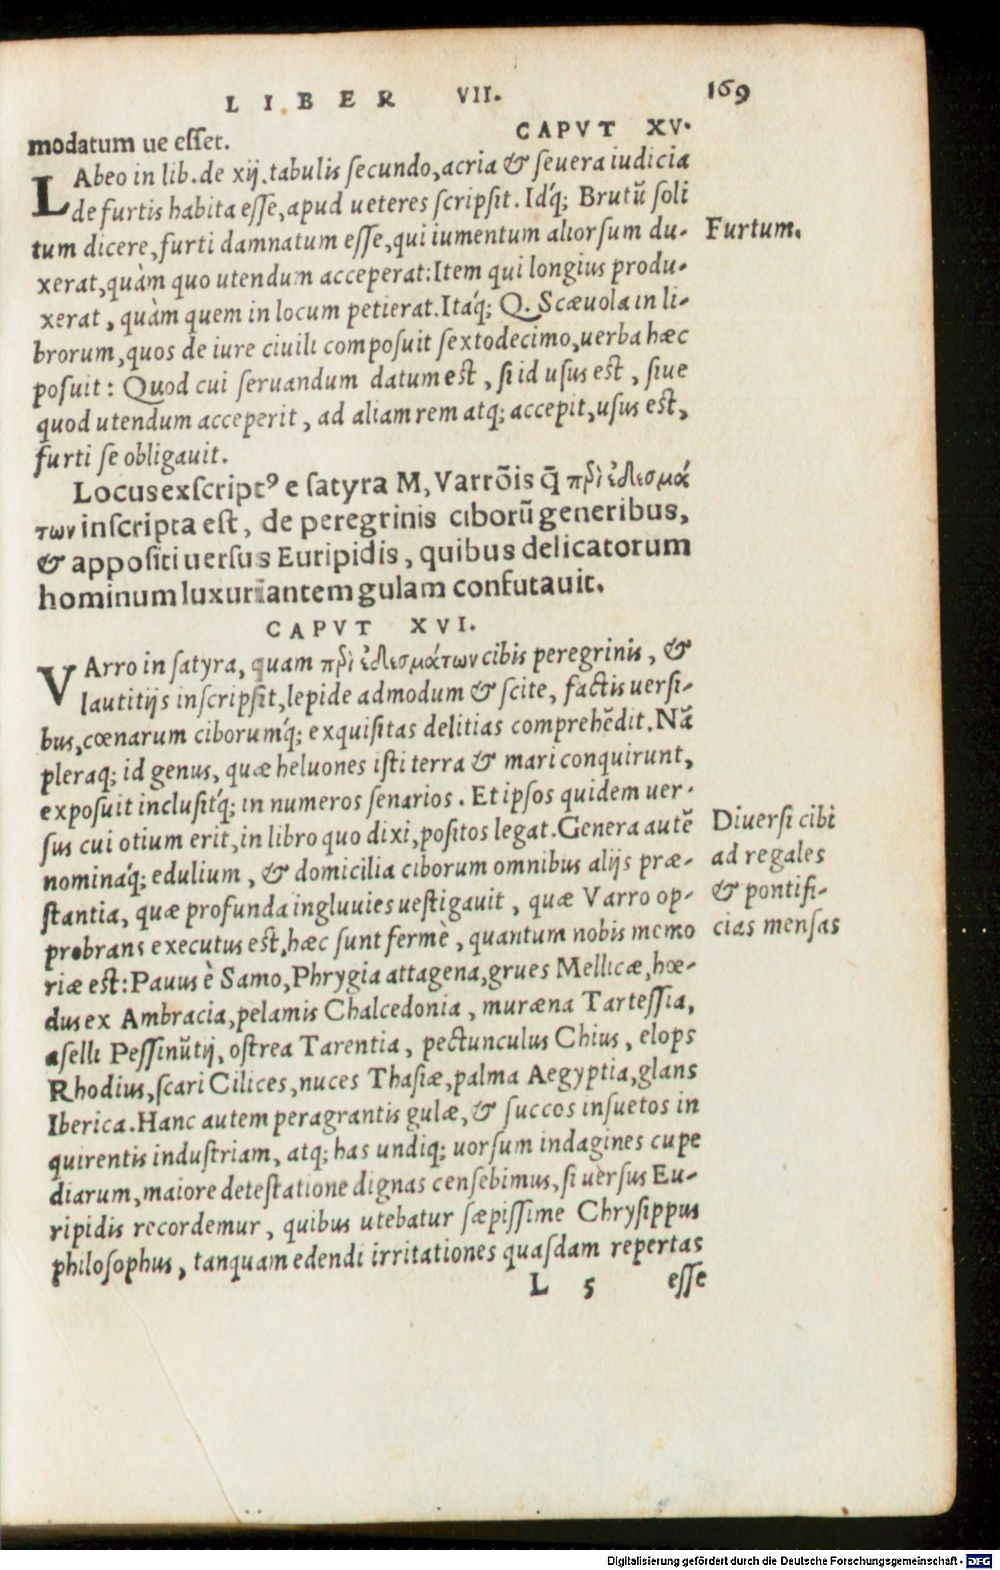 LIBER VII. 169
modatum ue esset. CAPVT XV.
LAbeo in lib. de xij. tabulis secundo, acria & seuera iudicia
de furtis habita esse, apud ueteres scripsit. Idq́; Brutũ soli
tum dicere, furti damnatum esse, qui iumentum aliorsum du-
Furtum.
xerat, quàm quo utendum acceperat: Item qui longius produ-
xerat, quàm quem in locum petierat. Itaq́; Q. Scæuola in li-
brorum, quos de iure ciuili composuit sextodecimo, uerba hæc
posuit: Quod cui seruandum datum est, si id usus est, siue
quod utendum acceperit, ad aliam rem atq; accepit, usus est,
furti se obligauit.
Locus exscriptꝰ e satyra M, Varrõis q̃ πϵρὶ ἐδεσμά
των inscripta est, de peregrinis ciborũ generibus,
& appositi uersus Euripidis, quibus delicatorum
hominum luxuriantem gulam confutauit.
CAPVT XVI.
VArro in satyra, quam πϵρὶ ἐδεσμάτων cibis peregrinis, &
lautitijs inscripsit, lepide admodum & scite, factis uersi-
bus, cœnarum ciborumq́; exquisitas delitias comprehẽdit. Nã
pleraq; id genus, quæ heluones isti terra & mari conquirunt,
exposuit inclusitq́; in numeros senarios. Et ipsos quidem uer-
sus cui otium erit, in libro quo dixi, positos legat. Genera autẽ
nomináq; edulium, & domicilia ciborum omnibus alijs præ-
stantia, quæ profunda ingluuies uestigauit, quæ Varro op-
probrans executus est, hæc sunt fermè, quantum nobis memo
Diuersi cibi
ad regales
& pontifi-
cias mensas
riæ est: Pauus è Samo, Phrygia attagena, grues Mellicæ, hœ-
dus ex Ambracia, pelamis Chalcedonia, muræna Tartessia,
aselli Pessinũtij, ostrea Tarentia, pectunculus Chius, elops
Rhodius, scari Cilices, nuces Thasiæ, palma Aegyptia, glans
Iberica. Hanc autem peragrantis gulæ, & succos insuetos in
quirentis industriam, atq; has undiq; uorsum indagines cupe
diarum, maiore detestatione dignas censebimus, si uersus Eu-
ripidis recordemur, quibus utebatur sæpissime Chrysippus
philosophus, tanquam edendi irritationes quasdam repertas
L 5 esse
Digitalisierung gefördert durch die Deutsche Forschungsgemeinschaft - DFG